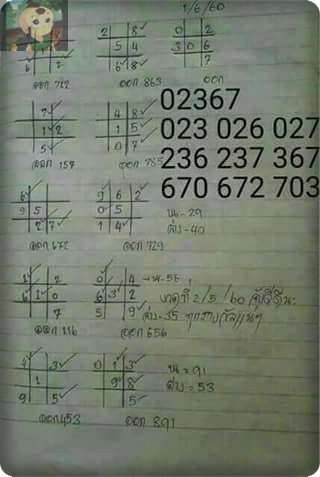 1/6/60
2 8
5 4
6 8
0 2
3 0 6
7
6 2
ออก 712
ออก 863
ออก
02367
023 026 027
236 237 367
670 672 703
7
1 2
5
4 8
1 5
0 7
ออก 157
ออก 785
6
9 5
2 7
9 6 2
0 5
1 4
บน-29
ล่าง-40
ออก 672
ออก 729
1 2
6 1 0
7
0 4
6 3 2
5 9
บน-56
งวดที่ 2/5/60
ล่าง-35
ออก 116
ออก 656
3
1
9 5
0 1 3
9 8
5
บน=91
ล่าง=53
ออก 453
ออก 891